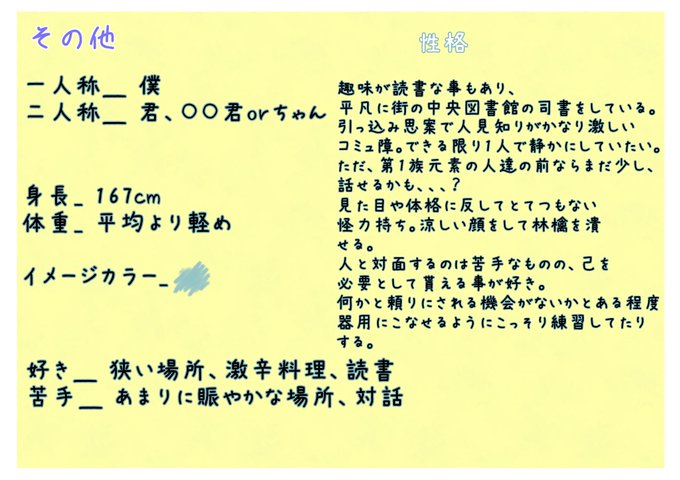 その他
一人称__ 僕
二人称__ 君、〇〇君orちゃん
身長_ 167cm
体重_ 平均より軽め
イメージカラー_
好き__ 狭い場所、激辛料理、読書
苦手__ あまりに賑やかな場所、対話
性格
趣味が読書な事もあり、
平凡に街の中央図書館の司書をしている。
引っ込み思案で人見知りがかなり激しい
コミュ障。できる限り1人で静かにしていたい。
ただ、第1族元素の人達の前ならまだ少し、
話せるかも、、、?
見た目や体格に反してとてつもない
怪力持ち。涼しい顔をして林檎を潰
せる。
人と対面するのは苦手なものの、己を
必要として貰える事が好き。
何かと頼りにされる機会がないかとある程度
器用にこなせるようにこっそり練習してたり
する。